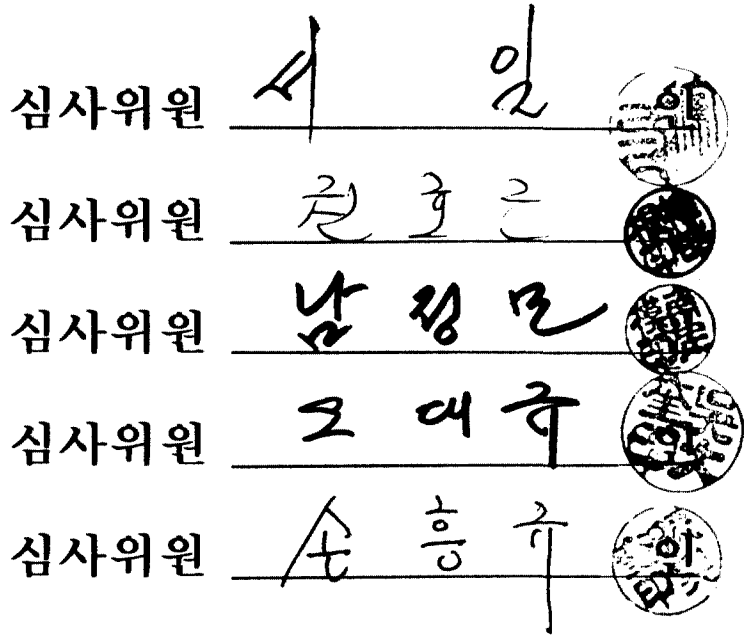 심사위원 서 일 인
심사위원 권호근
심사위원 남정모
심사위원 오대규 인
심사위원 손흥규 인